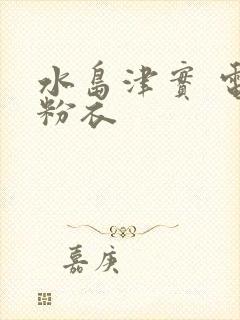 水島津實 電
粉衣
嘉庚